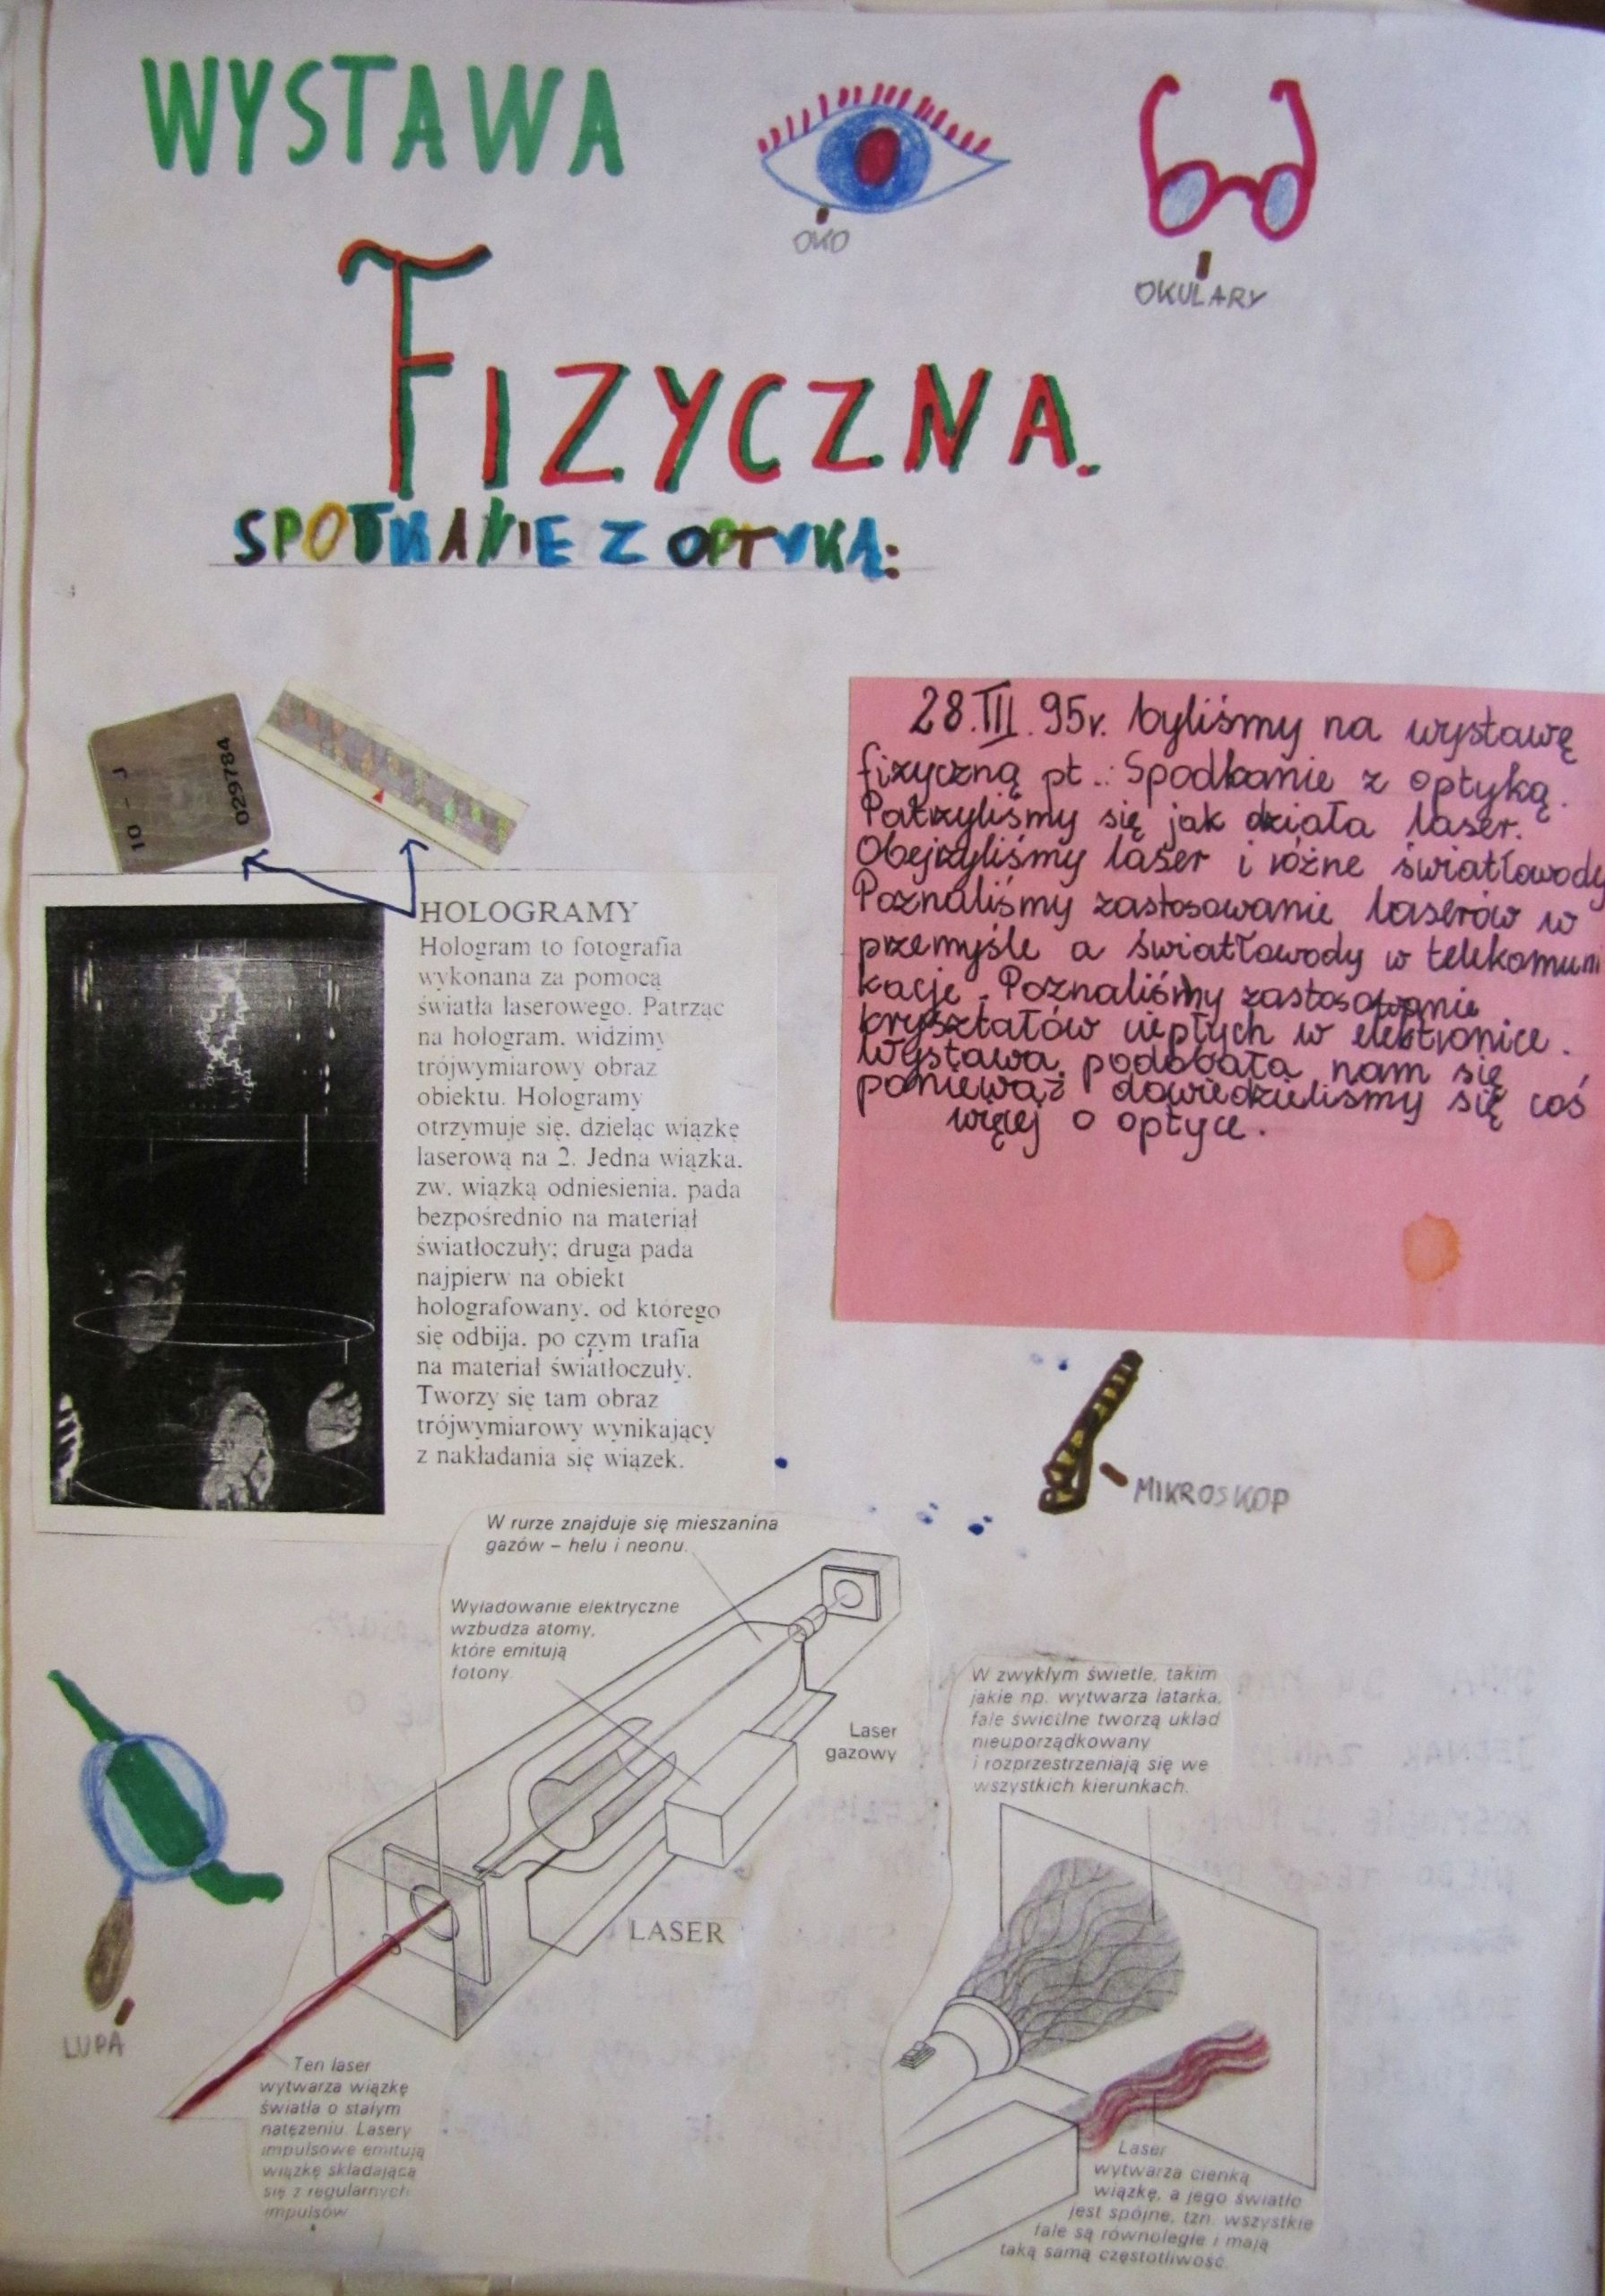 WYSTAWA
OKO
OKULARY
FIZYCZNA.
SPOTKANIE Z OPTYKĄ:
10 - J
029784
28.III.95r. byliśmy na wystawę
fizyczną pt.: Spodkanie z optyką.
Patrzyliśmy się jak działa laser.
Obejrzyliśmy laser i różne światłowody
Poznaliśmy zastosowanie laserów w
przemyśle a światłowody w telekomuni
kacje. Poznaliśmy zastosowanie
kryształów ciepłych w elektronice.
Wystawa podobała nam się
ponieważ dowiedzieliśmy się coś
więcej o optyce.
HOLOGRAMY
Hologram to fotografia
wykonana za pomocą
światła laserowego. Patrząc
na hologram, widzimy
trójwymiarowy obraz
obiektu. Hologramy
otrzymuje się, dzieląc wiązkę
laserową na 2. Jedna wiązka,
zw. wiązką odniesienia, pada
bezpośrednio na materiał
światłoczuły; druga pada
najpierw na obiekt
holografowany, od którego
się odbija, po czym trafia
na materiał światłoczuły.
Tworzy się tam obraz
trójwymiarowy wynikający
z nakładania się wiązek.
MIKROSKOP
W rurze znajduje się mieszanina
gazów – helu i neonu.
Wyładowanie elektryczne
wzbudza atomy,
które emitują
fotony.
Laser
gazowy
LASER
W zwykłym świetle, takim
jakie np. wytwarza latarka,
fale świetlne tworzą układ
nieuporządkowany
i rozprzestrzeniają się we
wszystkich kierunkach.
LUPA
Ten laser
wytwarza wiązkę
światła o stałym
natężeniu. Lasery
impulsowe emitują
wiązkę składającą
się z regularnych
impulsów
Laser
wytwarza cienką
wiązkę, a jego światło
jest spójne, tzn. wszystkie
fale są równoległe i mają
taką samą częstotliwość.